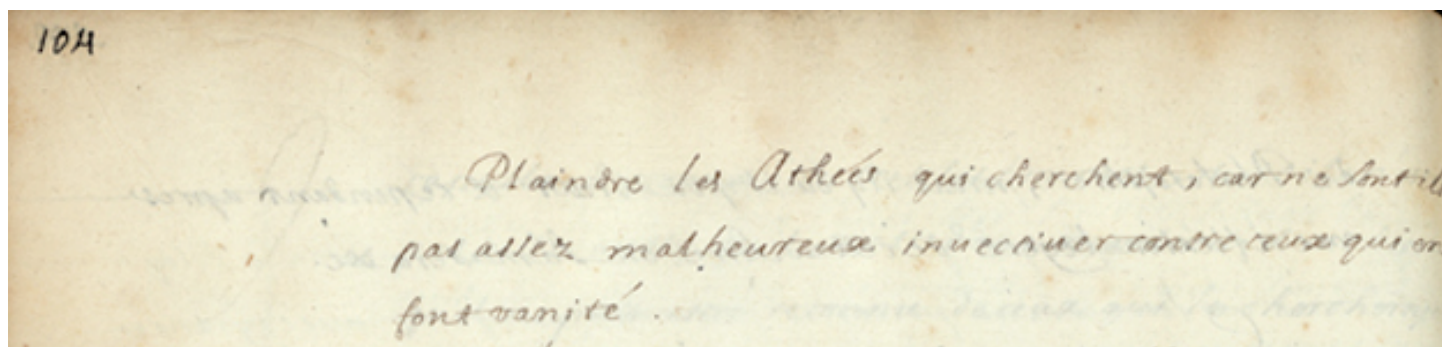 104
Plaindre les Atheés qui cherchent, car ne sont il
pas assez malheureux inuectiuer contre ceux qui en
font vanité.